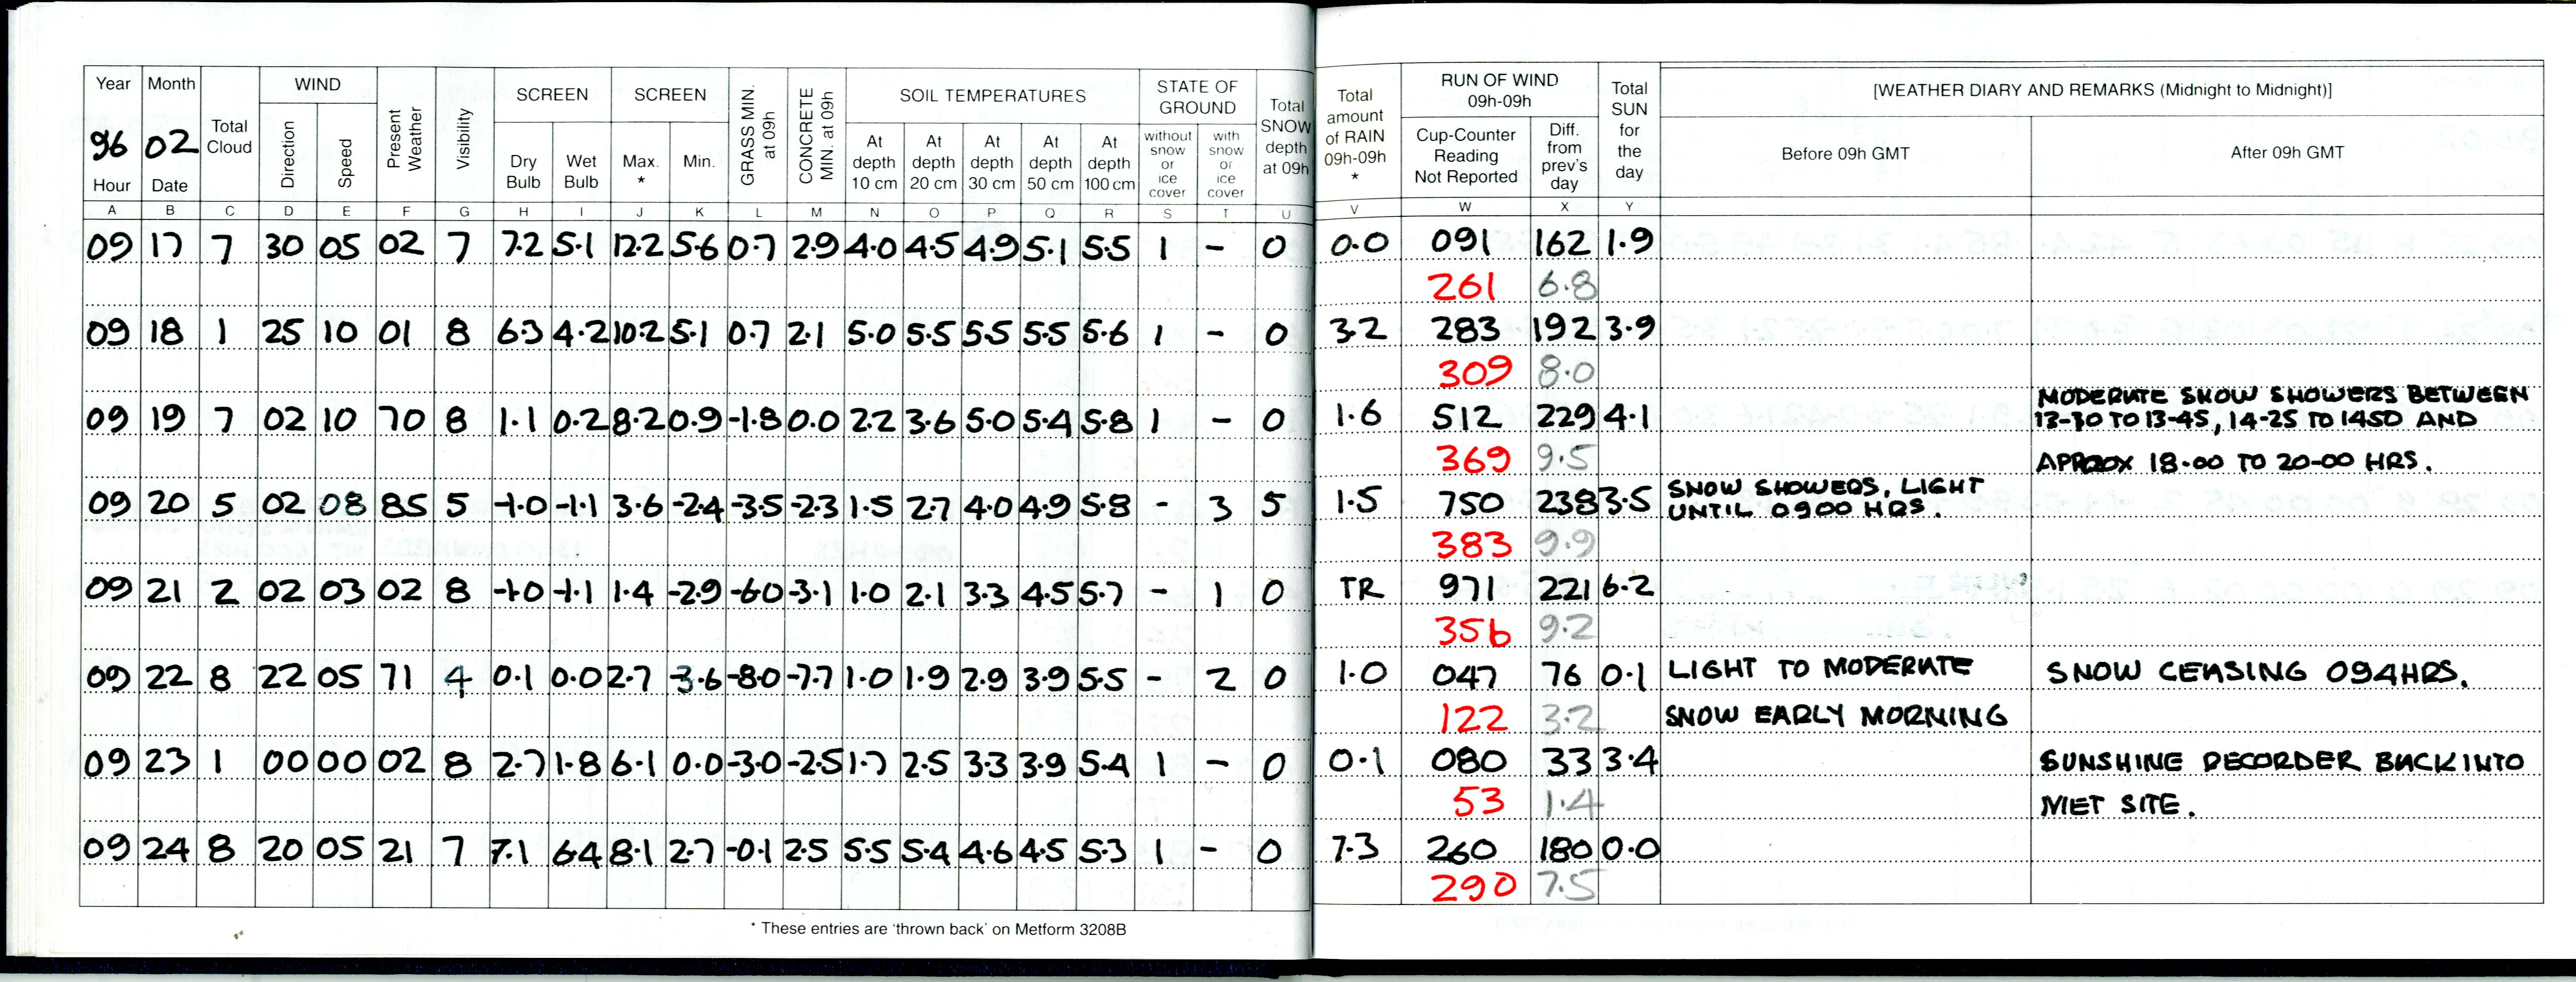 Year Month Total Cloud WIND Present Weather Visibility SCREEN SCREEN GRASS MIN. at 09h CONCRETE MIN. at 09h SOIL TEMPERATURES STATE OF GROUND Total SNOW depth at 09h Total amount of RAIN 09h-09h * RUN OF WIND 09h-09h Total SUN for the day [WEATHER DIARY AND REMARKS (Midnight to Midnight)]
96 02 Direction Speed Dry Bulb Wet Bulb Max. * Min. At depth 10 cm At depth 20 cm At depth 30 cm At depth 50 cm At depth 100 cm without snow or ice cover with snow or ice cover Cup-Counter Reading Not Reported Diff. from prev's day Before 09h GMT After 09h GMT
Hour Date
A B C D E F G H I J K L M N O P Q R S T U V W X Y
09 17 7 30 05 02 7 7.2 5.1 12.2 5.6 0.7 2.9 4.0 4.5 4.9 5.1 5.5 1 - 0 0.0 091 162 1.9
261 6.8
09 18 1 25 10 01 8 6.3 4.2 10.2 5.1 0.7 2.1 5.0 5.5 5.5 5.5 5.6 1 - 0 3.2 283 192 3.9
309 8.0
MODERATE SNOW SHOWERS BETWEEN
09 19 7 02 10 70 8 1.1 0.2 8.2 0.9 -1.8 0.0 2.2 3.6 5.0 5.4 5.8 1 - 0 1.6 512 229 4.1 13-30 TO 13-45, 14-25 TO 1450 AND
369 9.5 APPROX 18.00 TO 20-00 HRS.
09 20 5 02 08 85 5 -1.0 -1.1 3.6 -2.4 -3.5 -2.3 1.5 2.7 4.0 4.9 5.8 - 3 5 1.5 750 238 3.5 SNOW SHOWERS, LIGHT
UNTIL 0900 HRS.
383 9.9
09 21 2 02 03 02 8 -1.0 -1.1 1.4 -2.9 -6.0 -3.1 1.0 2.1 3.3 4.5 5.7 - 1 0 TR 971 221 6.2
356 9.2
09 22 8 22 05 71 4 0.1 0.0 2.7 -3.6 -8.0 -7.7 1.0 1.9 2.9 3.9 5.5 - 2 0 1.0 047 76 0.1 LIGHT TO MODERATE SNOW CEASING 094HRS.
122 3.2 SNOW EARLY MORNING
09 23 1 00 00 02 8 2.7 1.8 6.1 0.0 -3.0 -2.5 1.7 2.5 3.3 3.9 5.4 1 - 0 0.1 080 33 3.4 SUNSHINE RECORDER BACK INTO
53 1.4 MET SITE.
09 24 8 20 05 21 7 7.1 6.4 8.1 2.7 -0.1 2.5 5.5 5.4 4.6 4.5 5.3 1 - 0 7.3 260 180 0.0
290 7.5
* These entries are 'thrown back' on Metform 3208B